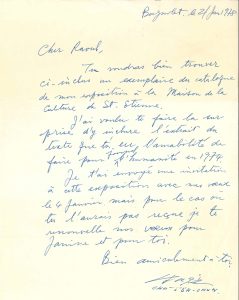 le 21 Janv 1978
Cher Raoul,
Tu voudras bien trouver
ci-inclus un exemplaire du catalogue
de mon exposition à la Maison de la
Culture de St. Etienne.
J'ai voulu te faire la sur
prise d'y inclure l'extrait du
texte que tu, eu, l'amabilité de
faire pour l'humanité en 1974.
Je t'ai envoyé une invitation
à cette exposition avec mes vœux
le 4 janvier mais pour le cas où
tu l'aurais pas reçue je te
renouvelle nos vœux pour
Janine et pour toi.
Bien amicalement à toi